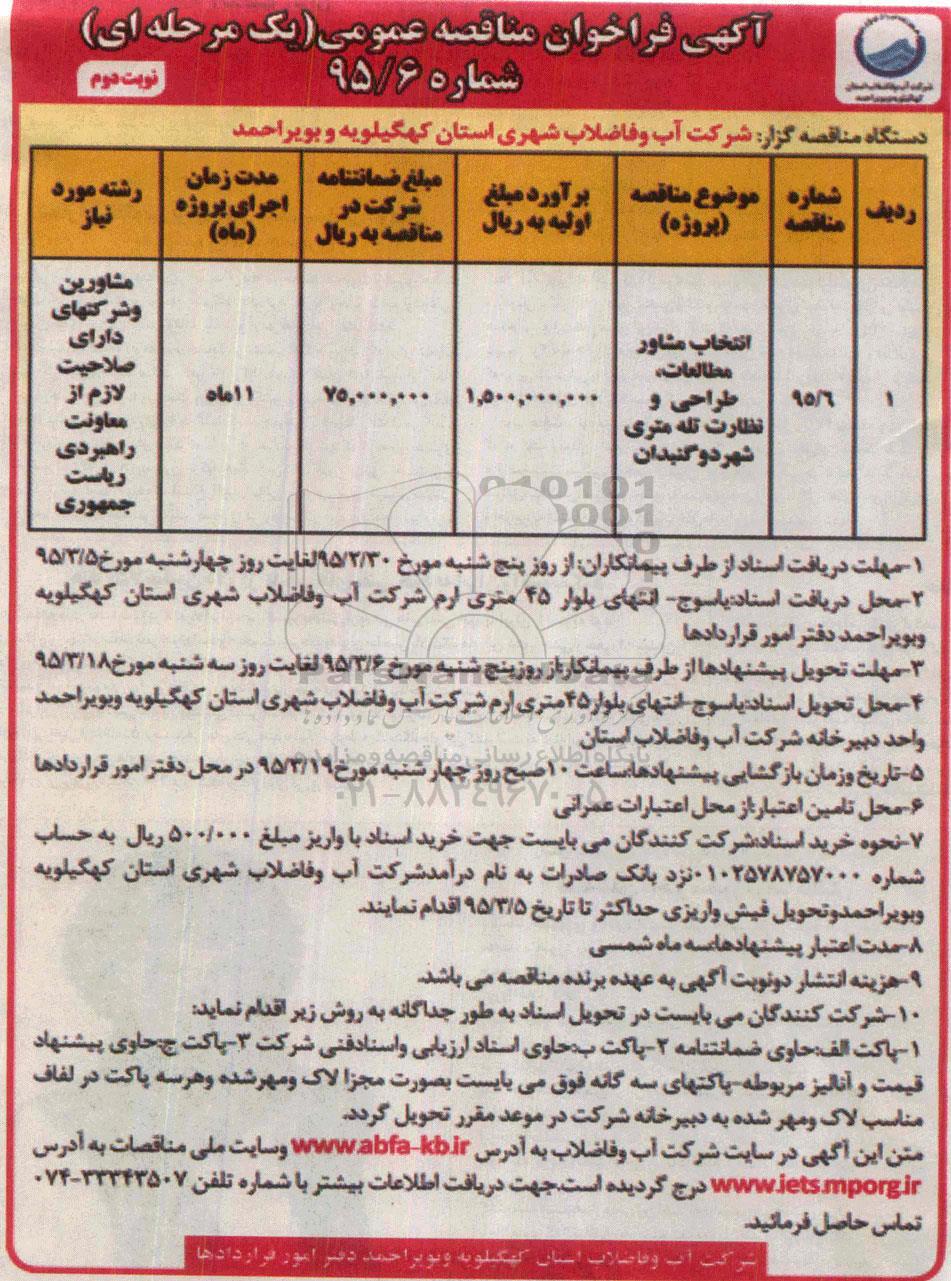 آگهی فراخوان مناقصه عمومی(یک مرحله ای)
شماره ۹۵/۶
نوبت دوم
شرکت آب وفاضلاب استان
کهگیلویه و بویراحمد
دستگاه مناقصه گزار: شرکت آب وفاضلاب شهری استان کهگیلویه و بویراحمد
ردیف
شماره مناقصه
موضوع مناقصه (پروژه)
برآورد مبلغ اولیه به ریال
مبلغ ضمانتنامه شرکت در مناقصه به ریال
مدت زمان اجرای پروژه (ماه)
رشته مورد نیاز
۱
۹۵/۶
انتخاب مشاور
مطالعات،
طراحی و
نظارت تله متری
شهردوگنبدان
۱,۵۰۰,۰۰۰,۰۰۰
۷۵,۰۰۰,۰۰۰
۱۱ماه
مشاورین
وشرکتهای
دارای
صلاحیت
لازم از
معاونت
راهبردی
ریاست
جمهوری
۱-مهلت دریافت اسناد از طرف پیمانکاران: از روز پنج شنبه مورخ ۹۵/۲/۳۰لغایت روز چهارشنبه مورخ۹۵/۳/۵
۲-محل دریافت اسناد:یاسوج- انتهای بلوار ۴۵ متری ارم شرکت آب وفاضلاب شهری استان کهگیلویه
وبویراحمد دفتر امور قراردادها
۳-مهلت تحویل پیشنهادها از طرف پیمانکار:از روز پنج شنبه مورخ ۹۵/۳/۶ لغایت روز سه شنبه مورخ۹۵/۳/۱۸
۴-محل تحویل اسناد:یاسوج-انتهای بلوار۴۵متری ارم شرکت آب وفاضلاب شهری استان کهگیلویه وبویراحمد
واحد دبیرخانه شرکت آب وفاضلاب استان
۵-تاریخ وزمان بازگشایی پیشنهادها:ساعت ۱۰صبح روز چهار شنبه مورخ۹۵/۳/۱۹ در محل دفتر امور قراردادها
۶-محل تامین اعتبار:از محل اعتبارات عمرانی
۷-نحوه خرید اسناد:شرکت کنندگان می بایست جهت خرید اسناد با واریز مبلغ ۵۰۰/۰۰۰ ریال به حساب
شماره ۰۱۰۲۵۷۸۷۵۷۰۰۰نزد بانک صادرات به نام درآمدشرکت آب وفاضلاب شهری استان کهگیلویه
وبویراحمدوتحویل فیش واریزی حداکثر تا تاریخ ۹۵/۳/۵ اقدام نمایند.
۸-مدت اعتبار پیشنهادها:سه ماه شمسی
۹-هزینه انتشار دونوبت آگهی به عهده برنده مناقصه می باشد.
۱۰-شرکت کنندگان می بایست در تحویل اسناد به طور جداگانه به روش زیر اقدام نماید:
۱-پاکت الف:حاوی ضمانتنامه ۲-پاکت ب:حاوی اسناد ارزیابی واسنادفنی شرکت ۳-پاکت ج:حاوی پیشنهاد
قیمت و آنالیز مربوطه-پاکتهای سه گانه فوق می بایست بصورت مجزا لاک ومهرشده وهرسه پاکت در لفاف
مناسب لاک ومهر شده به دبیرخانه شرکت در موعد مقرر تحویل گردد.
متن این آگهی در سایت شرکت آب وفاضلاب به آدرس www.abfa-kb.ir وسایت ملی مناقصات به آدرس
www.iets.mporg.ir درج گردیده است.جهت دریافت اطلاعات بیشتر با شماره تلفن ۳۳۳۴۳۵۰۷-۰۷۴
تماس حاصل فرمائید.
شرکت آب وفاضلاب استان کهگیلویه وبویراحمد دفتر امور قراردادها
پایگاه اطلاع رسانی مناقصه و مزایده
۰۲۱-۸۸۳۴۹۶۷۰-۵